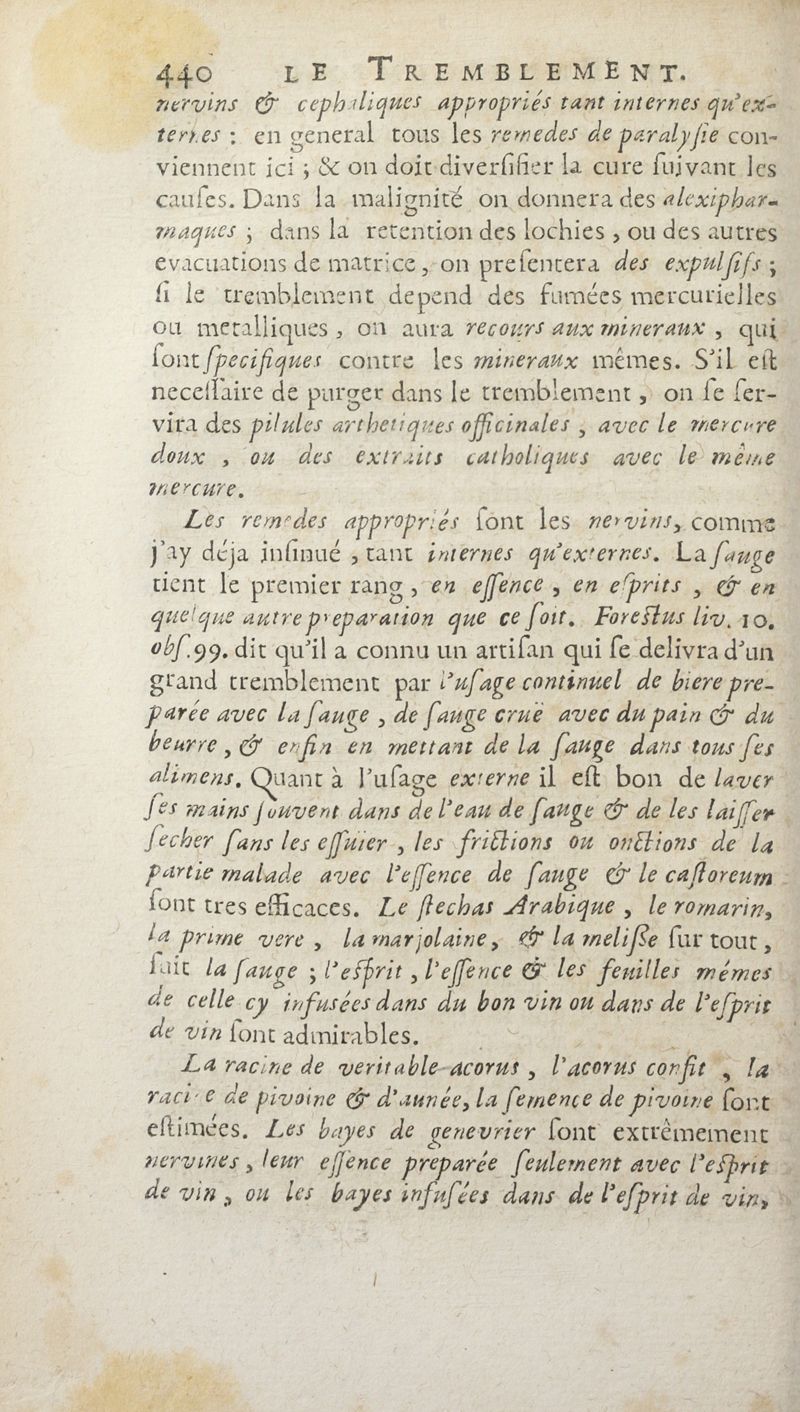 440 LE TREMBLEMENT.
nervins & cephaliques appropriés tant internes qu'ex-
ternes : en general tous les remedes de paralyſie con-
viennent ici ; & on doit diverſifier la cure ſuivant les
cauſes. Dans la malignité on donnera des alexiphar-
maques ; dans la retention des lochies , ou des autres
evacuations de matrice , on preſentera des expulſifs ;
ſi le tremblement depend des fumées mercurielles
ou metalliques , on aura recours aux mineraux , qui
ſont ſpecifiques contre les mineraux mêmes. S'il eſt
neceſſaire de purger dans le tremblement , on ſe ſer-
vira des pilules arthetiques officinales , avec le mercure
doux , ou des extraits catholiques avec le même
mercure.
Les remedes appropriés ſont les nervins, comme
j'ay déja inſinué , tant internes qu'externes. La ſauge
tient le premier rang , en eſſence , en eſprits , & en
quelque autre preparation que ce ſoit. Foreſtus liv. 10.
obſ. 99. dit qu'il a connu un artiſan qui ſe delivra d'un
grand tremblement par l'uſage continuel de biere pre-
parée avec la ſauge , de ſauge cruë avec du pain & du
beurre , & enfin en mettant de la ſauge dans tous ſes
alimens. Quant à l'uſage externe il eſt bon de laver
ſes mains ſouvent dans de l'eau de ſauge & de les laiſſer
ſecher ſans les eſſuier , les frictions ou onctions de la
partie malade avec l'eſſence de ſauge & le caſtoreum
ſont tres efficaces. Le ſtechas Arabique , le romarin,
la prime vere , la marjolaine, & la meliſſe ſur tout ,
ſuit la ſauge ; l'eſprit , l'eſſence & les feuilles mêmes
de celle cy infusées dans du bon vin ou dans de l'eſprit
de vin ſont admirables.
La racine de veritable acorus , l'acorus confit , la
racine de pivoine & d'aunée, la ſemence de pivoine ſont
eſtimées. Les bayes de genevrier ſont extrêmement
nervines , leur eſſence preparée ſeulement avec l'eſprit
de vin , ou les bayes infuſées dans de l'eſprit de vin,